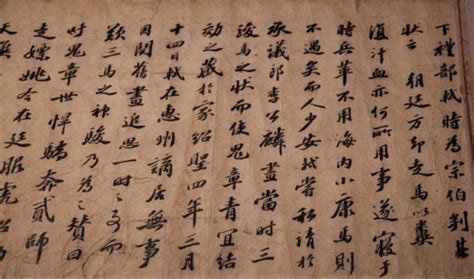 下禮部軾時為宗伯判其
狀云 朝廷方却走馬以糞
復汗血亦何所用事遂寢于
時兵革不用海內小康馬則
不遇矣而人少安軾嘗私請於
承議郎李公麟畫當時三
駿馬之狀而使鬼章青宜結
効之藏於家紹聖四年三月
十四日軾在惠州謫居無事
因閱舊畫追思一時之事而
歎三馬之神駿乃為之贊曰
吁鬼章世悍驕奔貳師
走嫖姚今在廷服虎貂
天驥